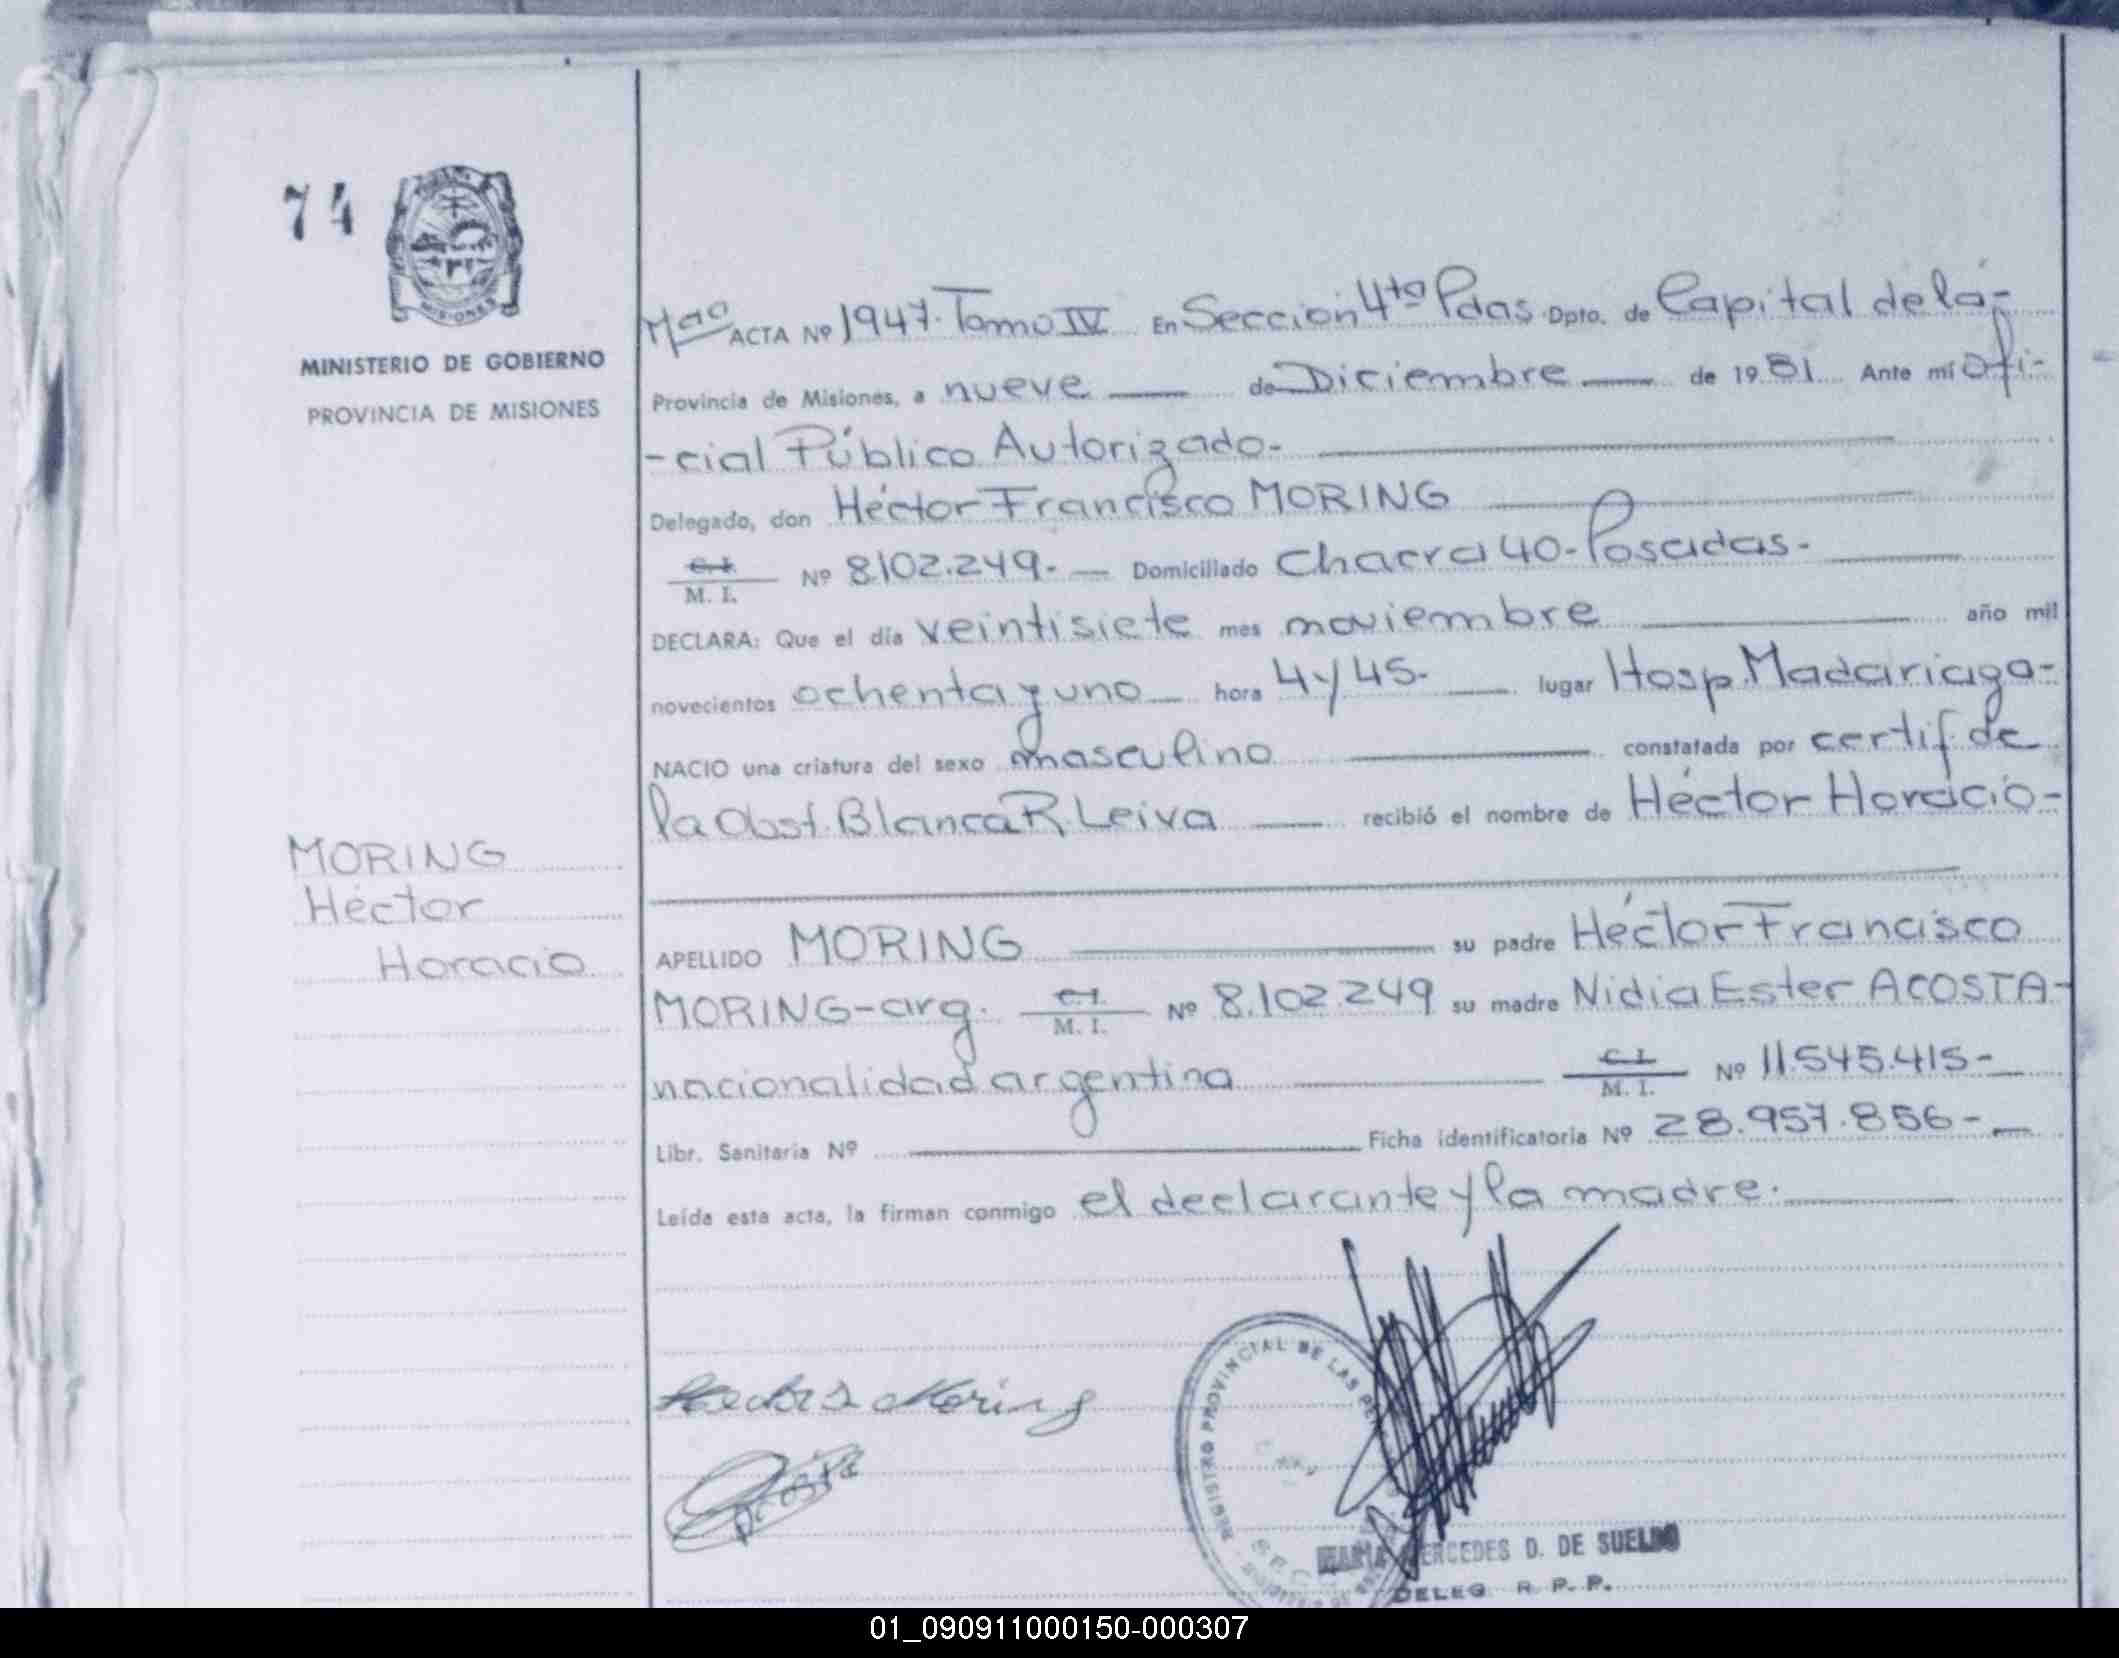 74
MISIONES
MINISTERIO DE GOBIERNO
PROVINCIA DE MISIONES
ACTA Nº 1947. Tomo IV En Sección 4ta Pdas. Dpto. de Capital de la-
Provincia de Misiones, a nueve de Diciembre de 1981. Ante mí ofi-
-cial Público Autorizado-
Delegado, don Héctor Francisco MORING
C. I.
M. I. Nº 8.102.249.- Domiciliado Chacra 40-Posadas-
DECLARA: Que el día veintisiete mes noviembre año mil
novecientos ochenta y uno hora 4 y 45.- lugar Hosp. Madariaga-
NACIO una criatura del sexo masculino constatada por certif. de
la Obst. Blanca R. Leiva recibió el nombre de Héctor Horacio-
MORING
Héctor
Horacio
APELLIDO MORING su padre Héctor Francisco
MORING-arg. C. I.
M. I. Nº 8.102.249 su madre Nidia Ester ACOSTA-
nacionalidad argentina C. I.
M. I. Nº 11.545.415-
Libr. Sanitaria Nº Ficha identificatoria Nº 28.957.856-
Leída esta acta, la firman conmigo el declarante y la madre.
REGISTRO PROVINCIAL DE LAS
Moring
Acosta
MARIA MERCEDES D. DE SUELDO
DELEG. R. P. P.
01_090911000150-000307